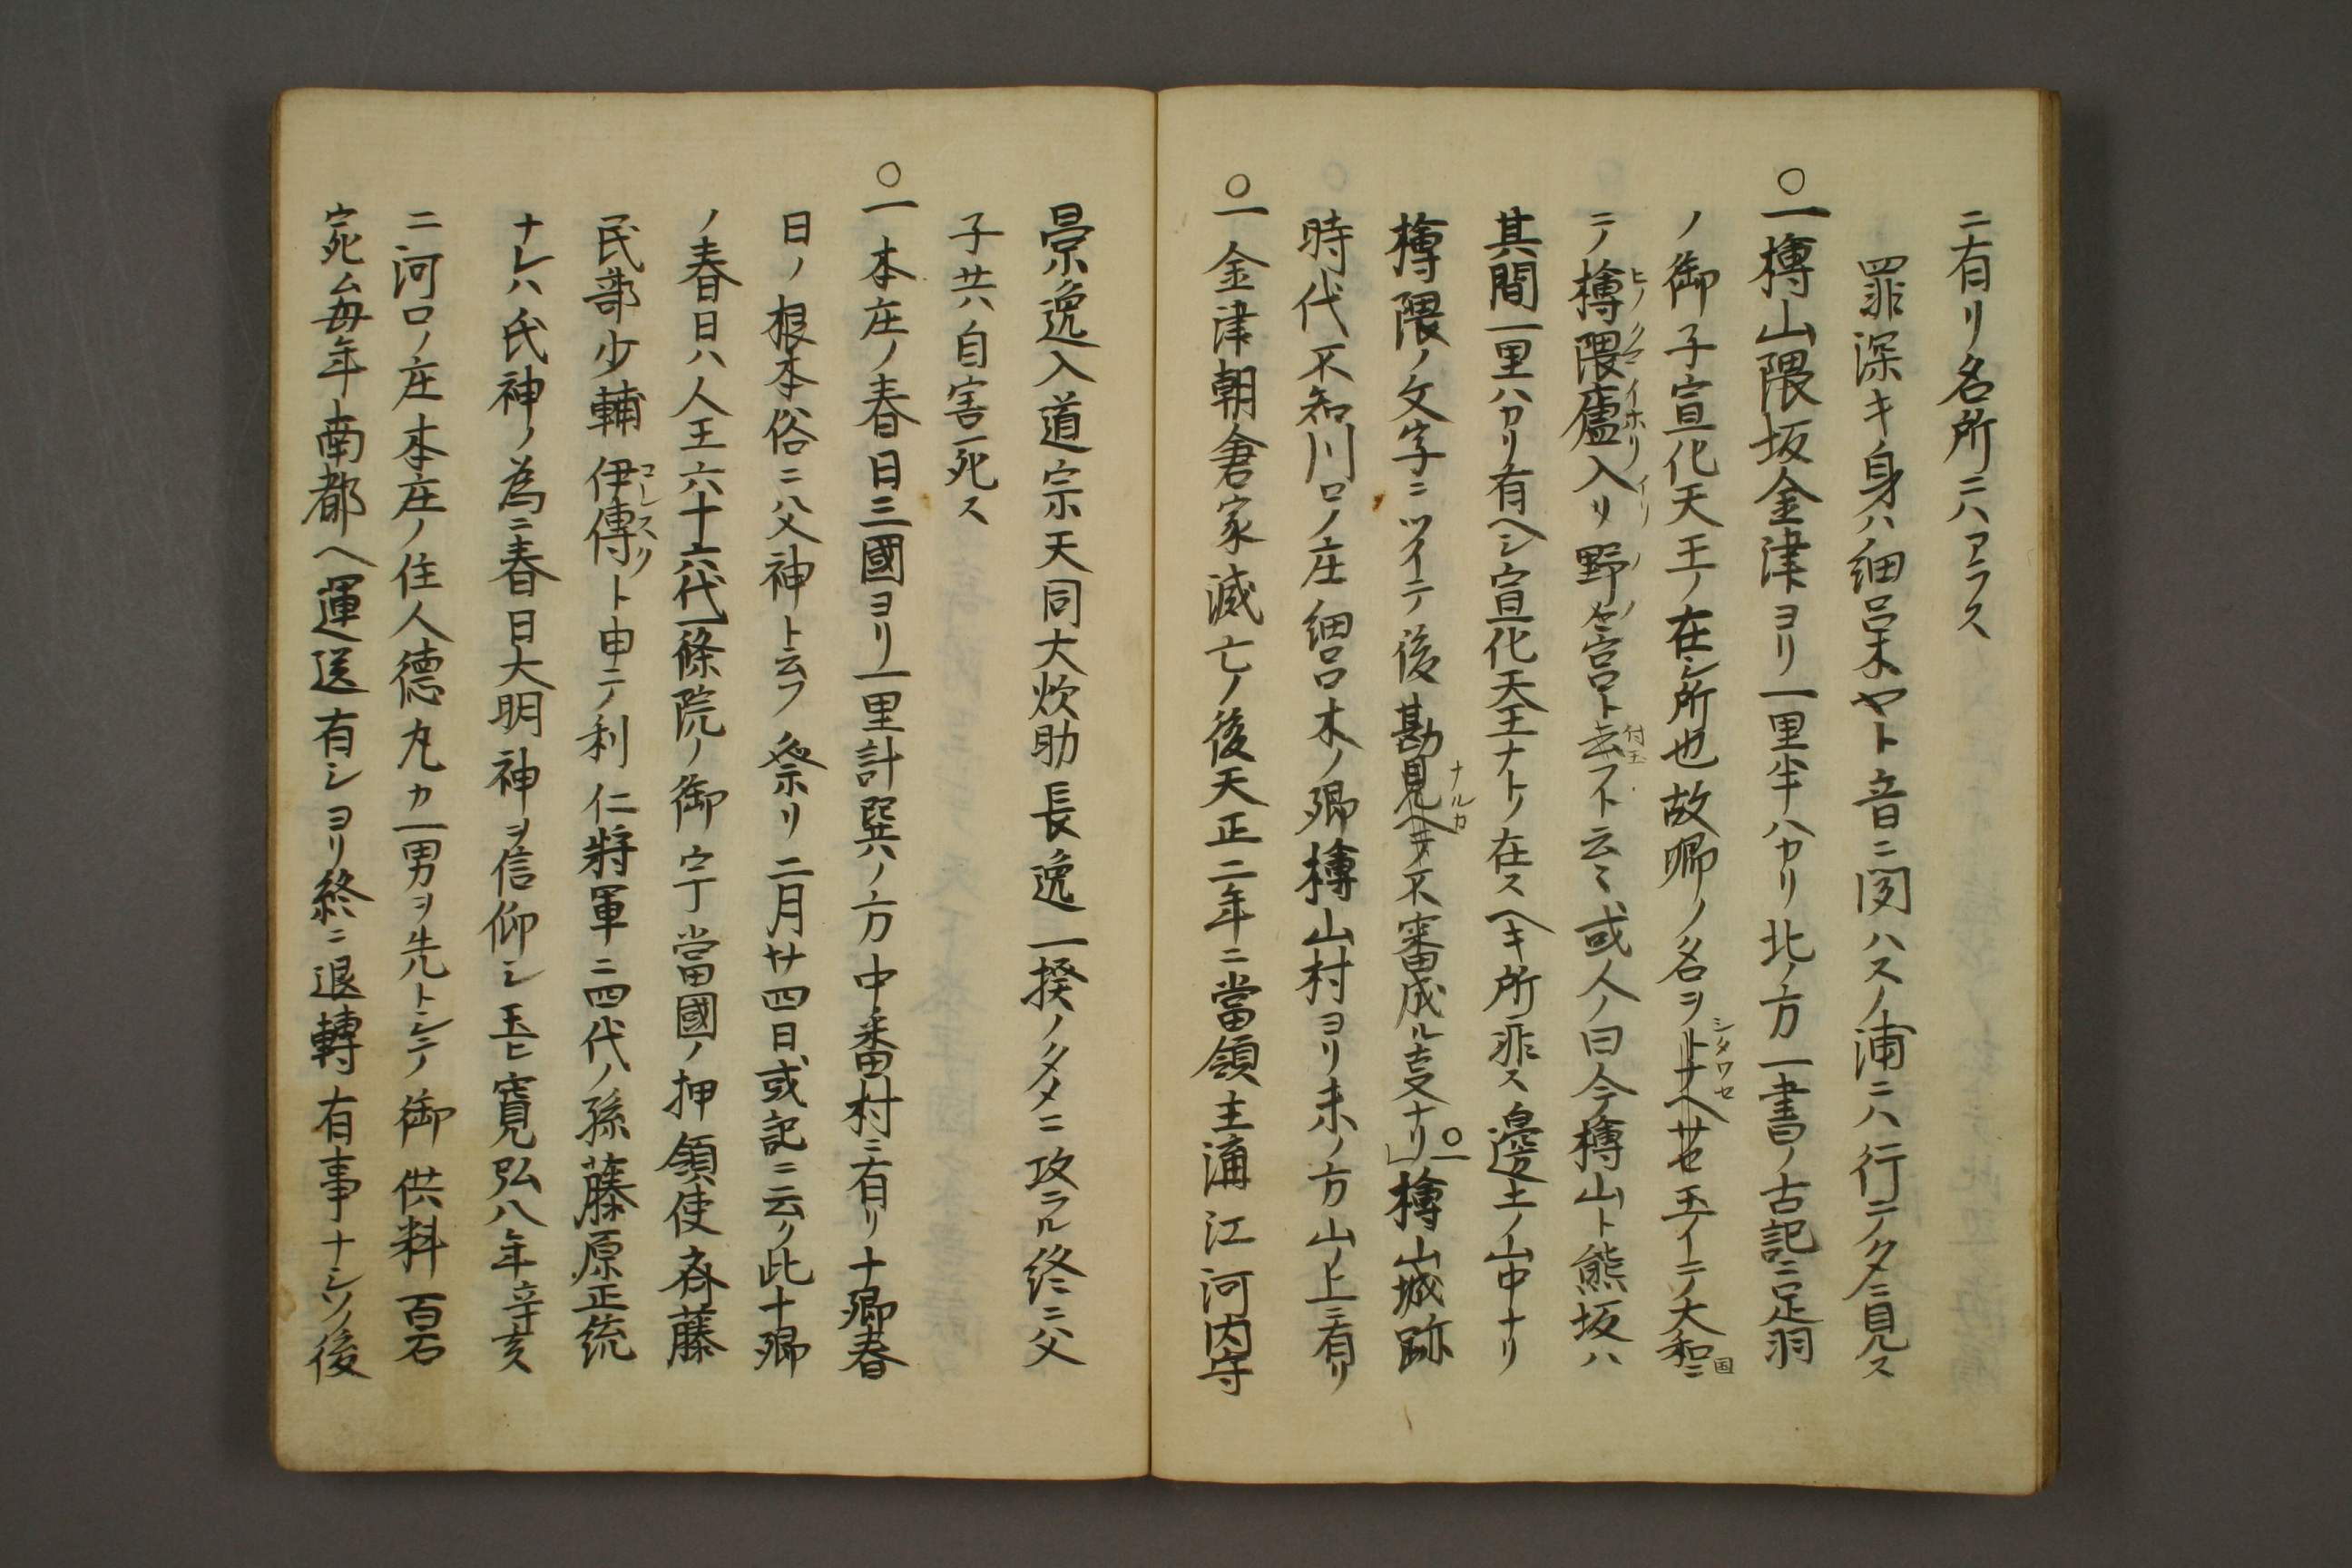 ニ有リ名所ニハアラス
罪深キ身ハ細呂木ヤト音ニ聞ハスノ浦ニハ行テタニ見ス
○一樽山隈坂金津ヨリ一里半ハカリ北ノ方一書ノ古記ニ足羽
ノ御子宣化天王ノ在シ所也故郷ノ名ヲトナヘサセ玉イテ大和国ニ
テ樽隈廬入リ野ノ宮ト云フト云々或人ノ曰今樽山ト熊坂ハ
其間一里ハカリ有ヘシ宣化天王ナトノ在スヘキ所非ス邊土ノ山中ナリ
樽隈ノ文字ニツイテ後勘見ヘキカ不審成ル支ナリ」○一樽山城跡
時代不知川口ノ庄細呂木ノ郷樽山村ヨリ未ノ方山ノ上ニ有リ
○一金津朝倉家滅亡ノ後天正二年ニ當領主溝江河内守
景逸入道宗天同大炊助長逸一揆ノタメニ攻ラル終ニ父
子共自害死ス
○一本庄ノ春日三國ヨリ一里計巽ノ方中番村ニ有リ十郷春
日ノ根本俗ニハ父神ト云フ祭リ二月廿四日或記ニ云ク此十郷
ノ春日ハ人王六十六代一條院ノ御宇當國ノ押領使斉藤
民部少輔伊傳ト申テ利仁將軍ニ四代ノ孫藤原正統
ナレハ氏神ノ為ニ春日大明神ヲ信仰シ玉ヒ寛弘八年辛亥
ニ河口ノ庄本庄ノ住人德丸カ一男ヲ先トシテ御供料百石
宛毎年南都ヘ運送有シヨリ終ニ退轉有事ナシソノ後